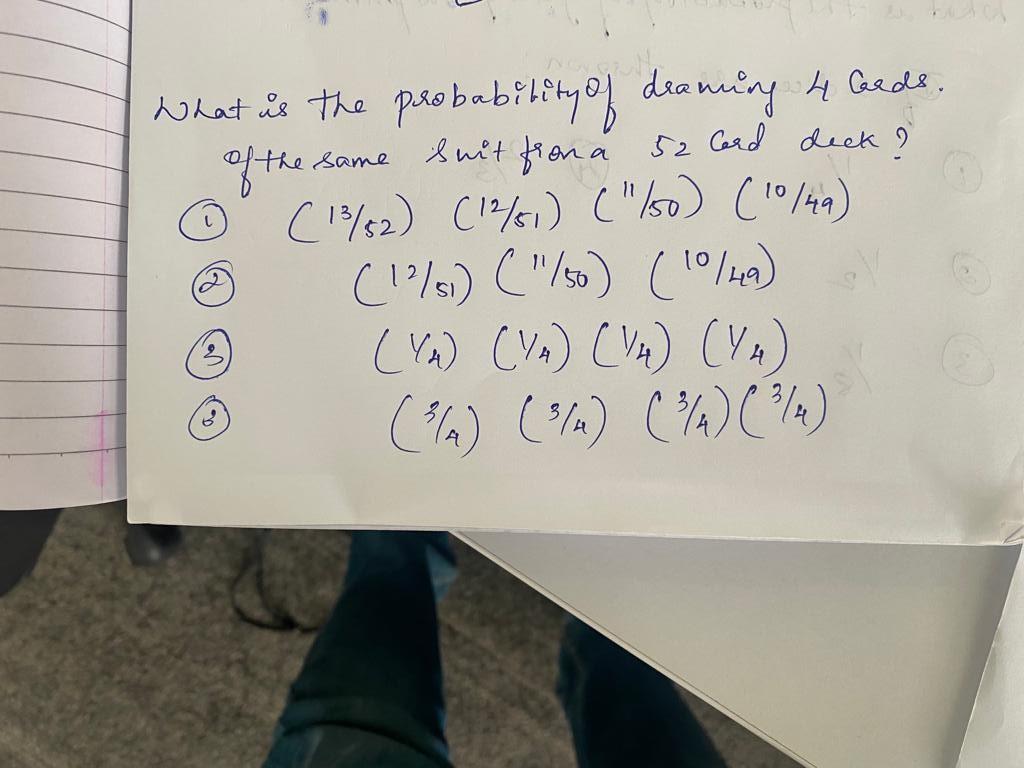 What is the probability of drawing 4 Cards.
of the same suit from a 52 Card deck ?
① (13/52) (12/51) (11/50) (10/49)
② (12/51) (11/50) (10/49)
③ (1/4) (1/4) (1/4) (1/4)
③ (3/4) (3/4) (3/4) (3/4)